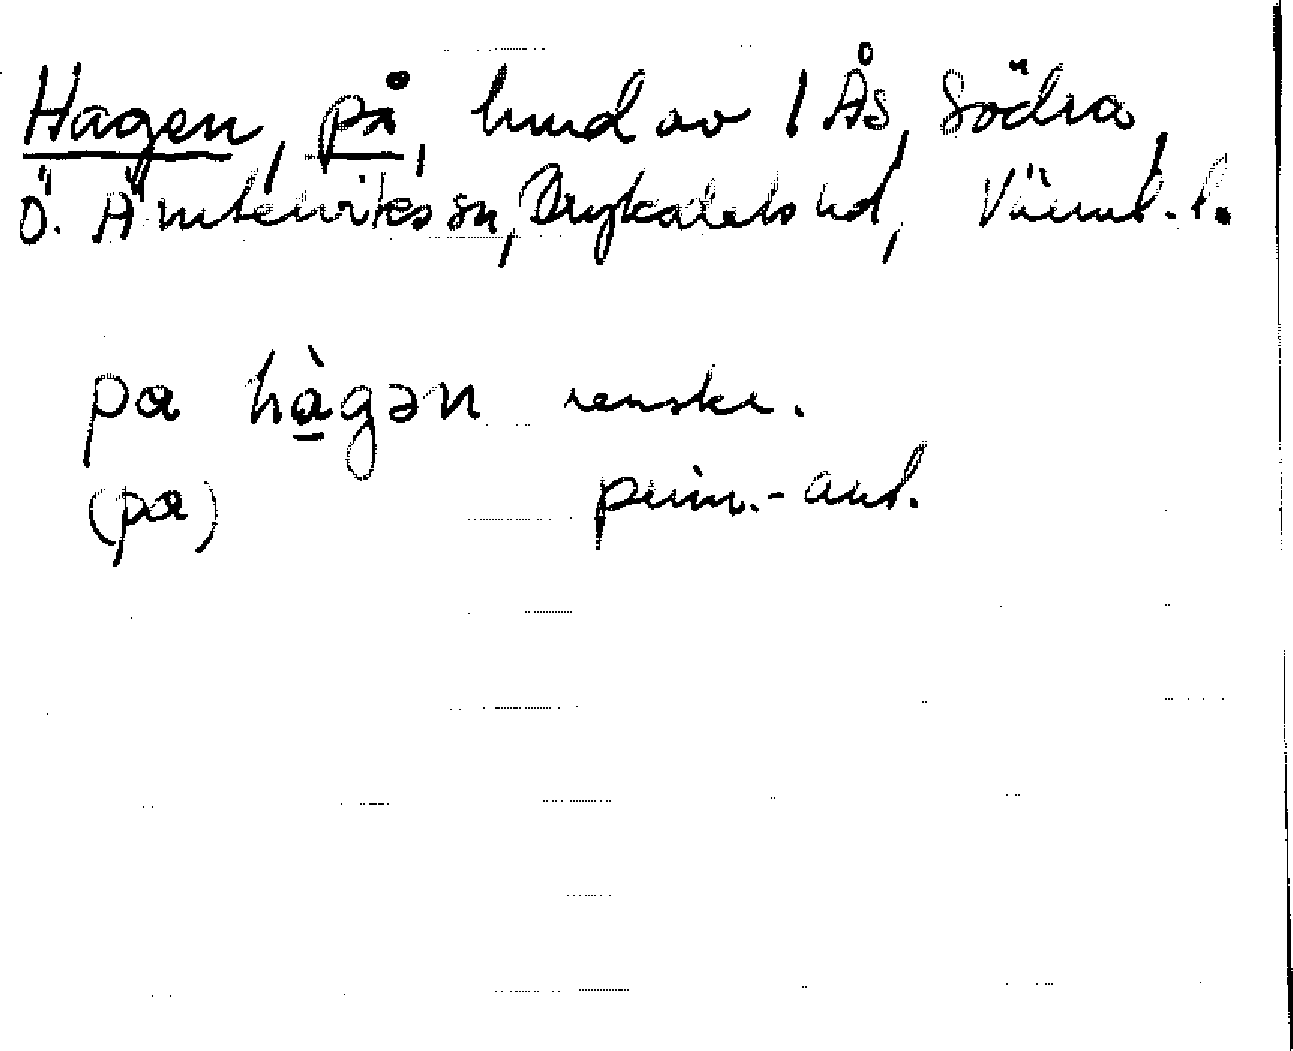 Hagen, på, hmd av 1 Ås, Södra,
Ö. Ämterviks sn, Fryksdals hd, Värml. l.
pa hàgən renskr.
(pa) prim.-ant.